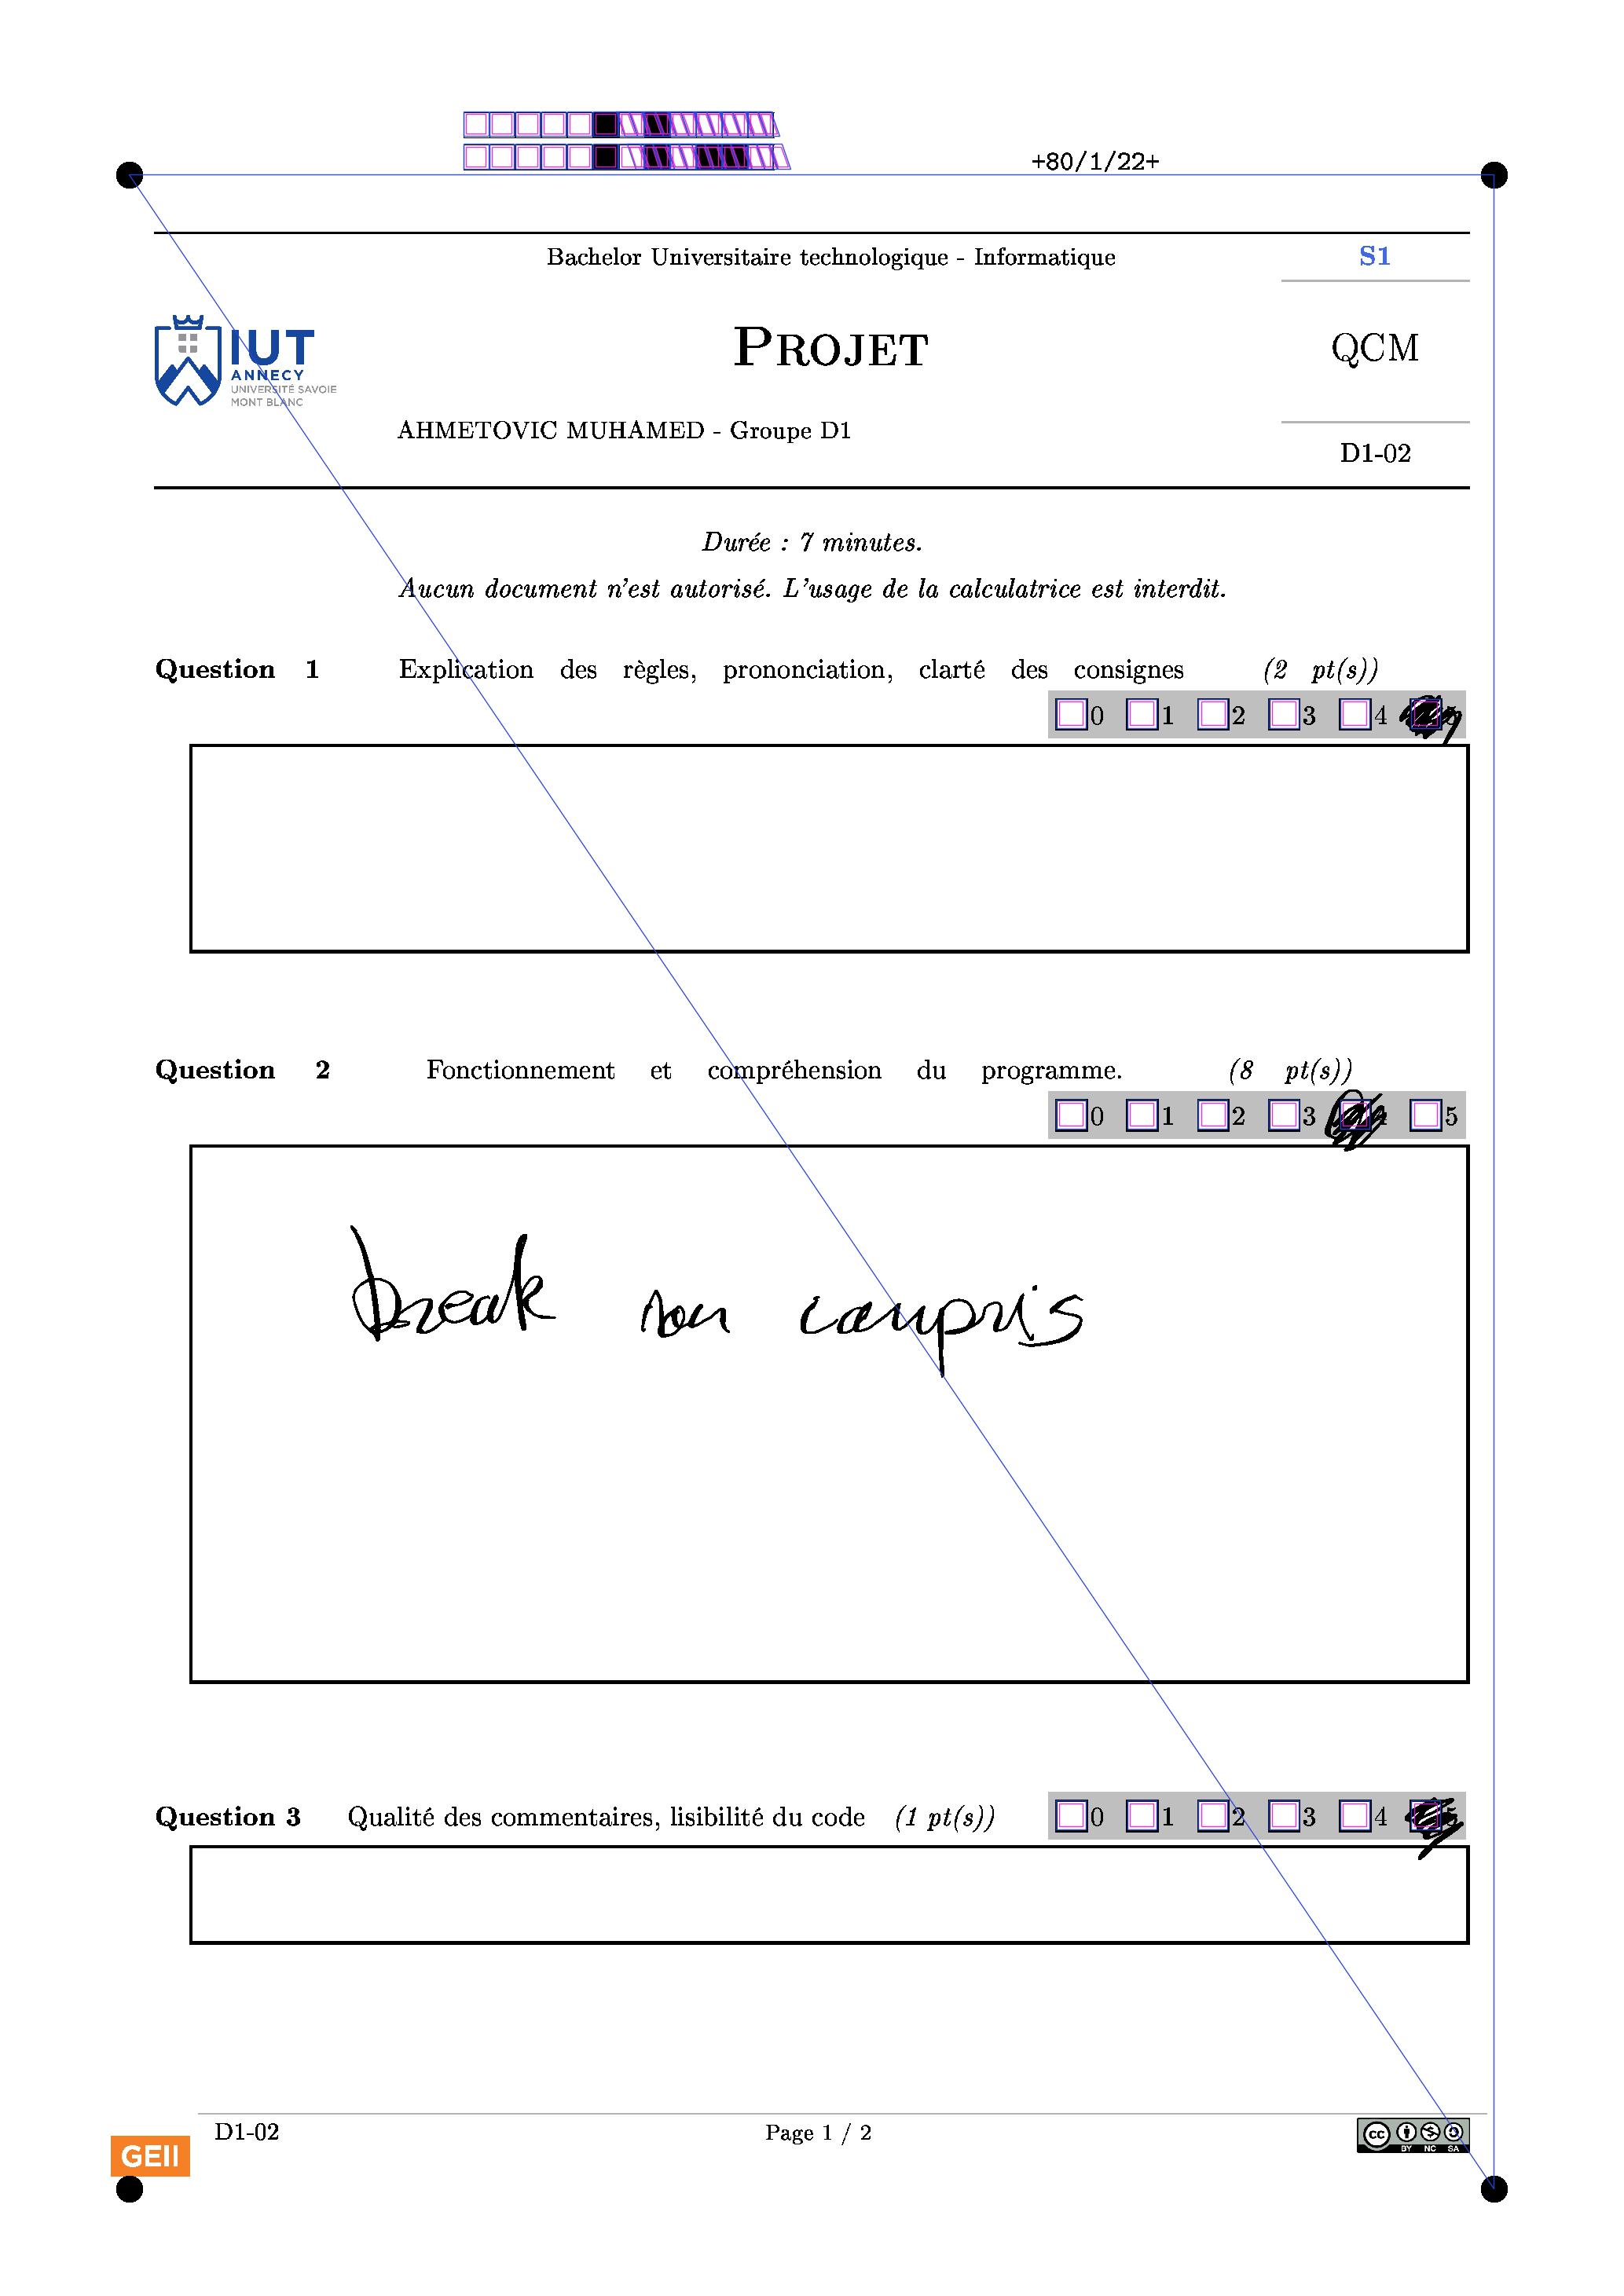 +80/1/22+
Bachelor Universitaire technologique - Informatique
S1
IUT
ANNECY
UNIVERSITÉ SAVOIE
MONT BLANC
PROJET
QCM
AHMETOVIC MUHAMED - Groupe D1
D1-02
Durée : 7 minutes.
Aucun document n'est autorisé. L'usage de la calculatrice est interdit.
Question 1 Explication des règles, prononciation, clarté des consignes (2 pt(s))
0 1 2 3 4 5
Question 2 Fonctionnement et compréhension du programme. (8 pt(s))
0 1 2 3 4 5
break non compris
Question 3 Qualité des commentaires, lisibilité du code (1 pt(s))
0 1 2 3 4 5
D1-02
Page 1 / 2
GEII
cc BY NC SA